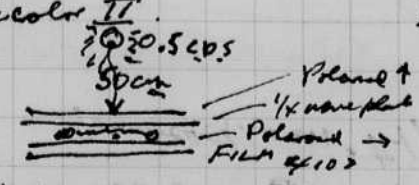 color II.
0.5 cps
50 cm
Polaroid ↑
1/4 wave plate
Polaroid →
FILM 4x10